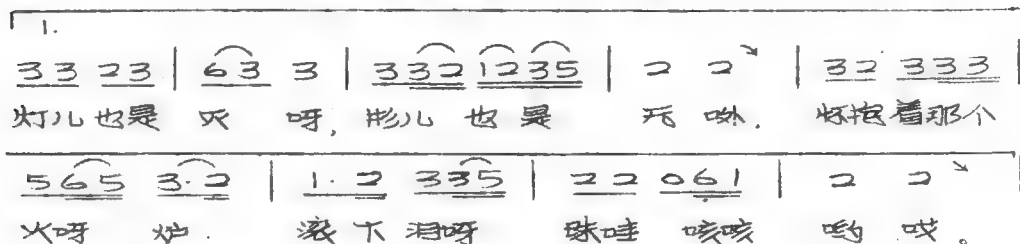 1.
3 3 2 3 | 6 3 3 | 3 3 2 1 2 3 5 | 2 2 | 3 2 3 3 3 |
灯儿也是 灭 呀, 影儿 也 是 无 哟. 怀抱着那个
5 6 5 3· 2 | 1· 2 3 3 5 | 2 2 0 6 1 | 2 2
火呀 炉. 滚 下 泪呀 珠哇 咳咳 哟 哎。